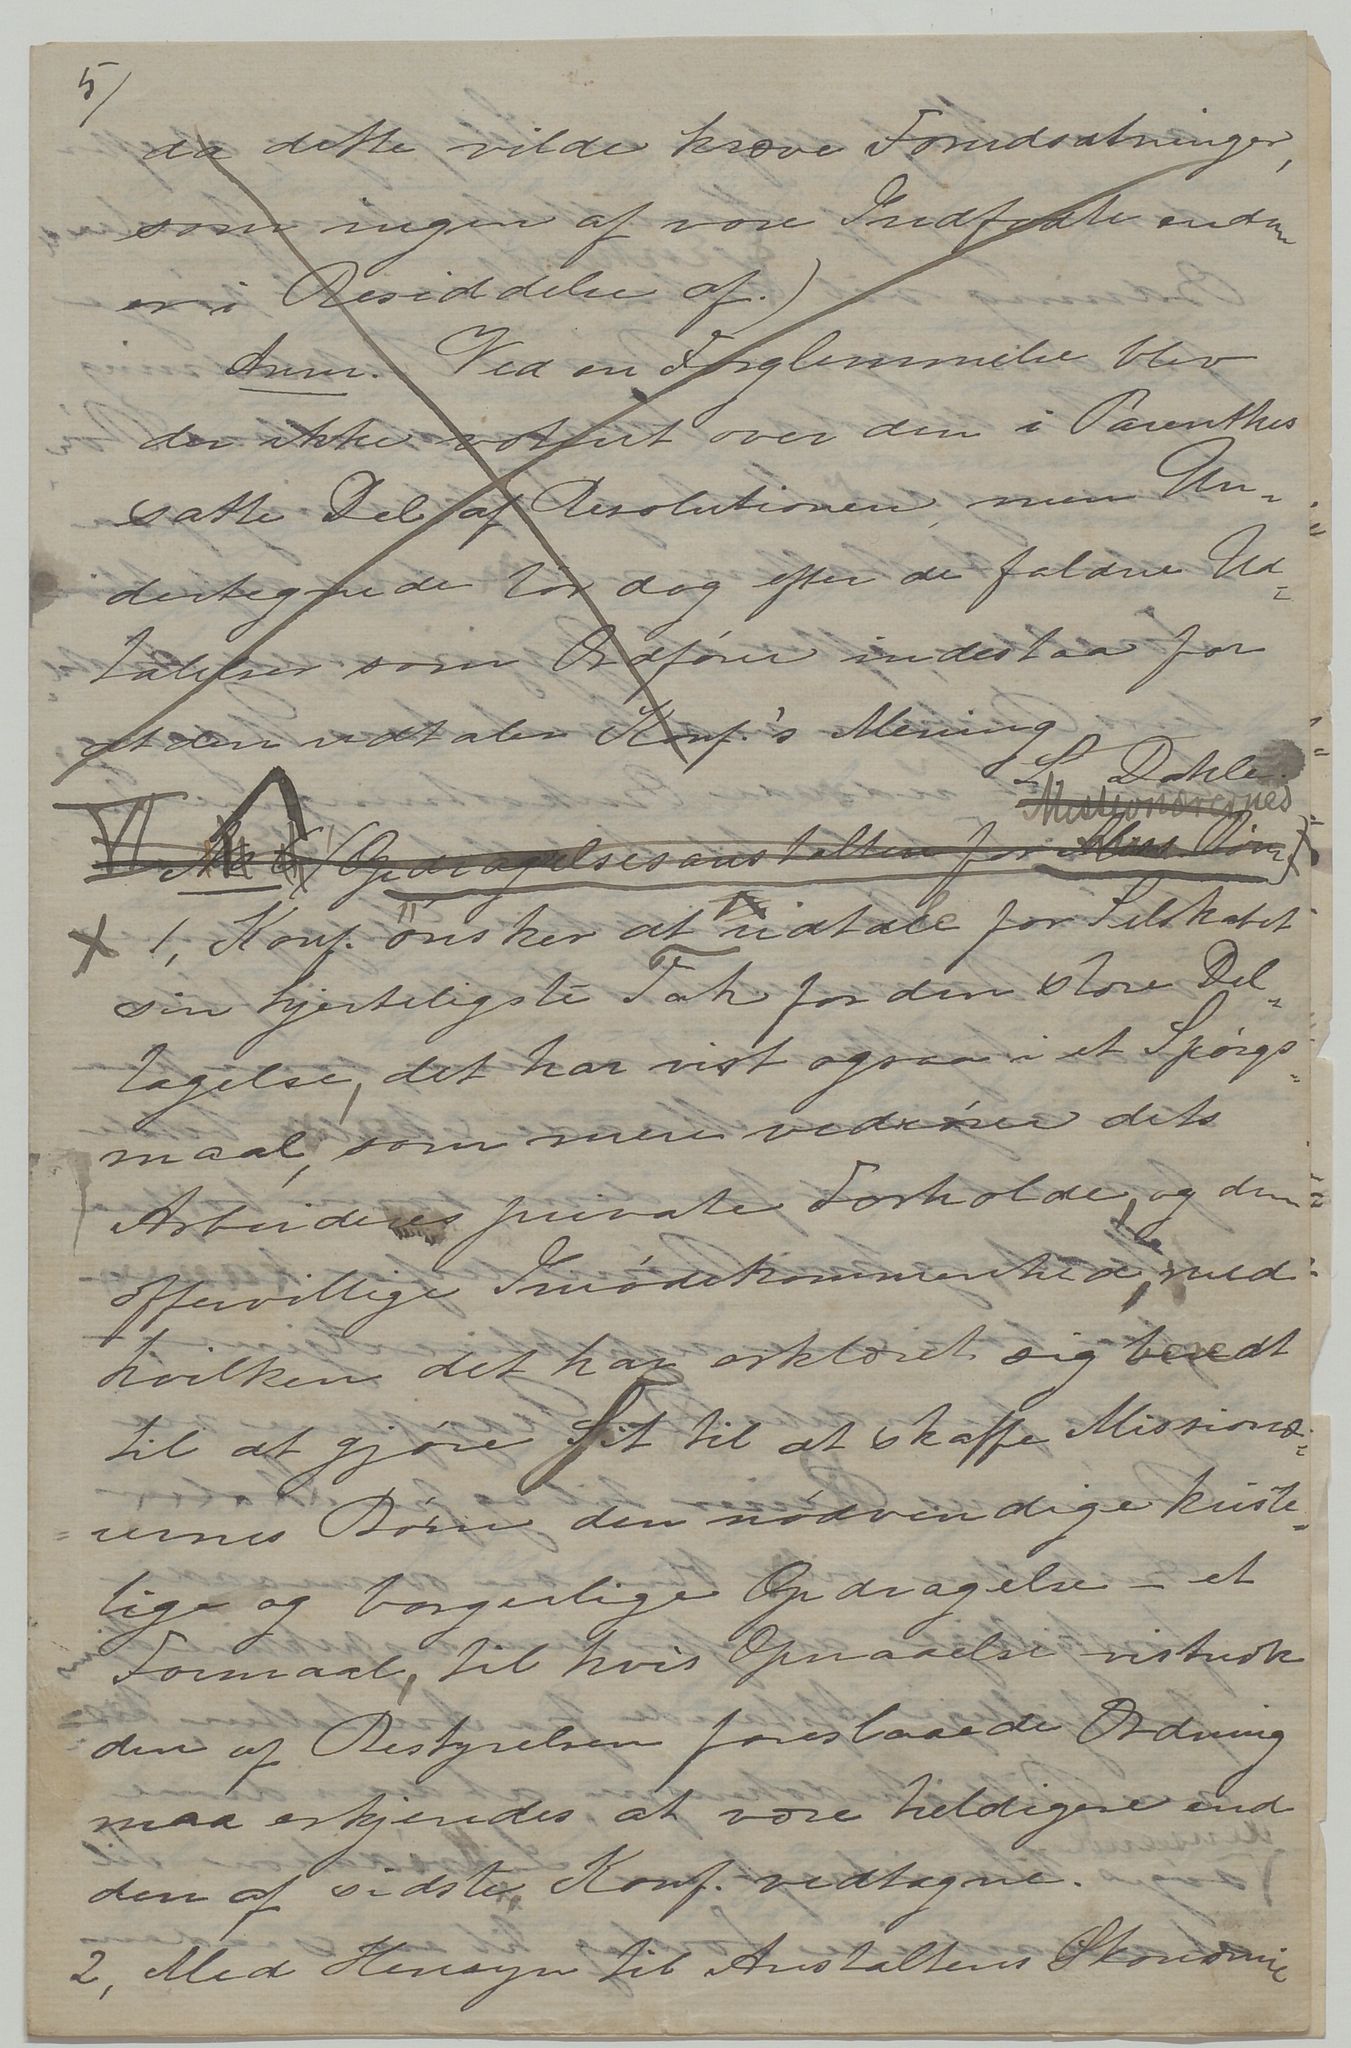 5/
da dette vilde kræve Forudsætninger,
som ingen af vore Indfødte endnu
er i Besiddelse af.)
Anm. Ved en Forglemmelse blev
der ikke votert over den i Parenthes
satte Del af Resolutionen, men Un-
dertegnede tør dog efter de faldne Ud-
talelser som Ordfører indestaa for
at den udtaler Konf.'s Mening
L. Dahle.
Missionærernes
VI (Opdragelsesanstalten for Miss. Børn)
1, Konf. ønsker at udtale for Selskabet
sin hjerteligste Tak for den store Del-
tagelse, det har vist ogsaa i et Spørgs-
maal, som mere vedrører dets
Arbeideres private Forholde, og den
offervillige Imødekommenhed, med
hvilken det har erklæret sig beredt
til at gjøre Sit til at skaffe Missionæ-
rernes Børn den nødvendige kriste-
lige og borgerlige Opdragelse - et
Formaal, til hvis Opnaaelse vistnok
den af Bestyrelsen foreslaaede Ordning
maa erkjendes at være heldigere end
den af sidste Konf. vedtagne.
2, Med Hensyn til Anstaltens Økonomie